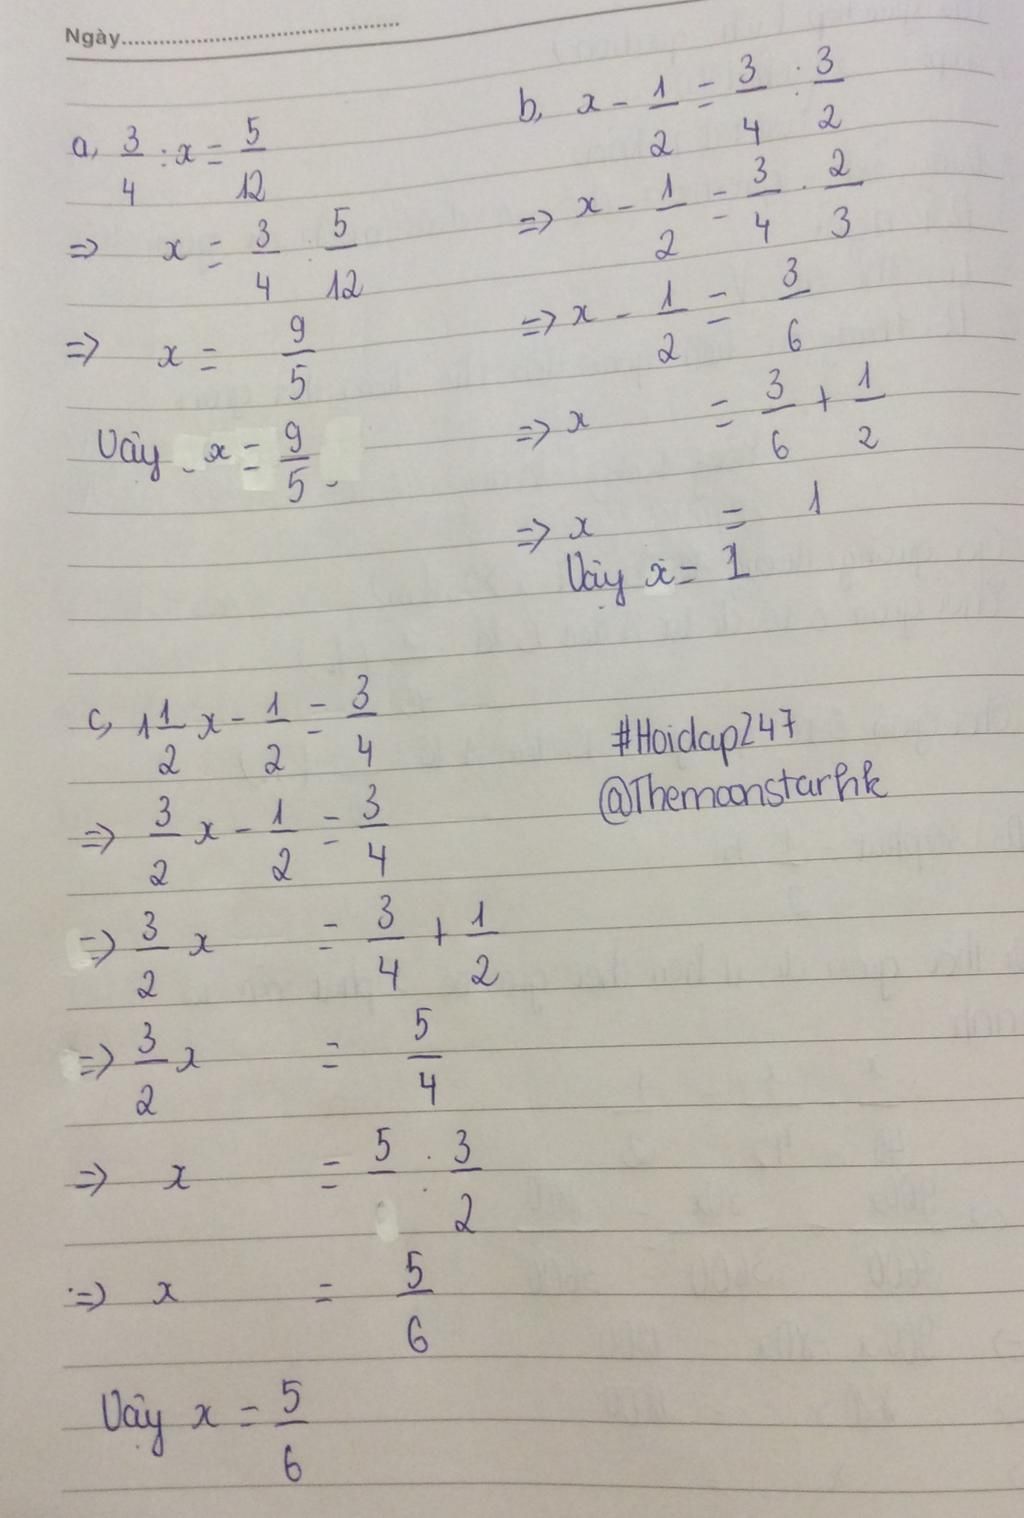 Ngày
a, 3/4 : x = 5/12
=> x = 3/4 : 5/12
=> x = 9/5
Vậy x = 9/5.
b, x - 1/2 = 3/4 : 3/2
=> x - 1/2 = 3/4 . 2/3
=> x - 1/2 = 3/6
=> x = 3/6 + 1/2
=> x = 1
Vậy x = 1
c, 1 1/2 x - 1/2 = 3/4
=> 3/2 x - 1/2 = 3/4
=> 3/2 x = 3/4 + 1/2
=> 3/2 x = 5/4
=> x = 5/ : 3/2
=> x = 5/6
Vậy x = 5/6
#Hoidap247
@Themoonstarhk